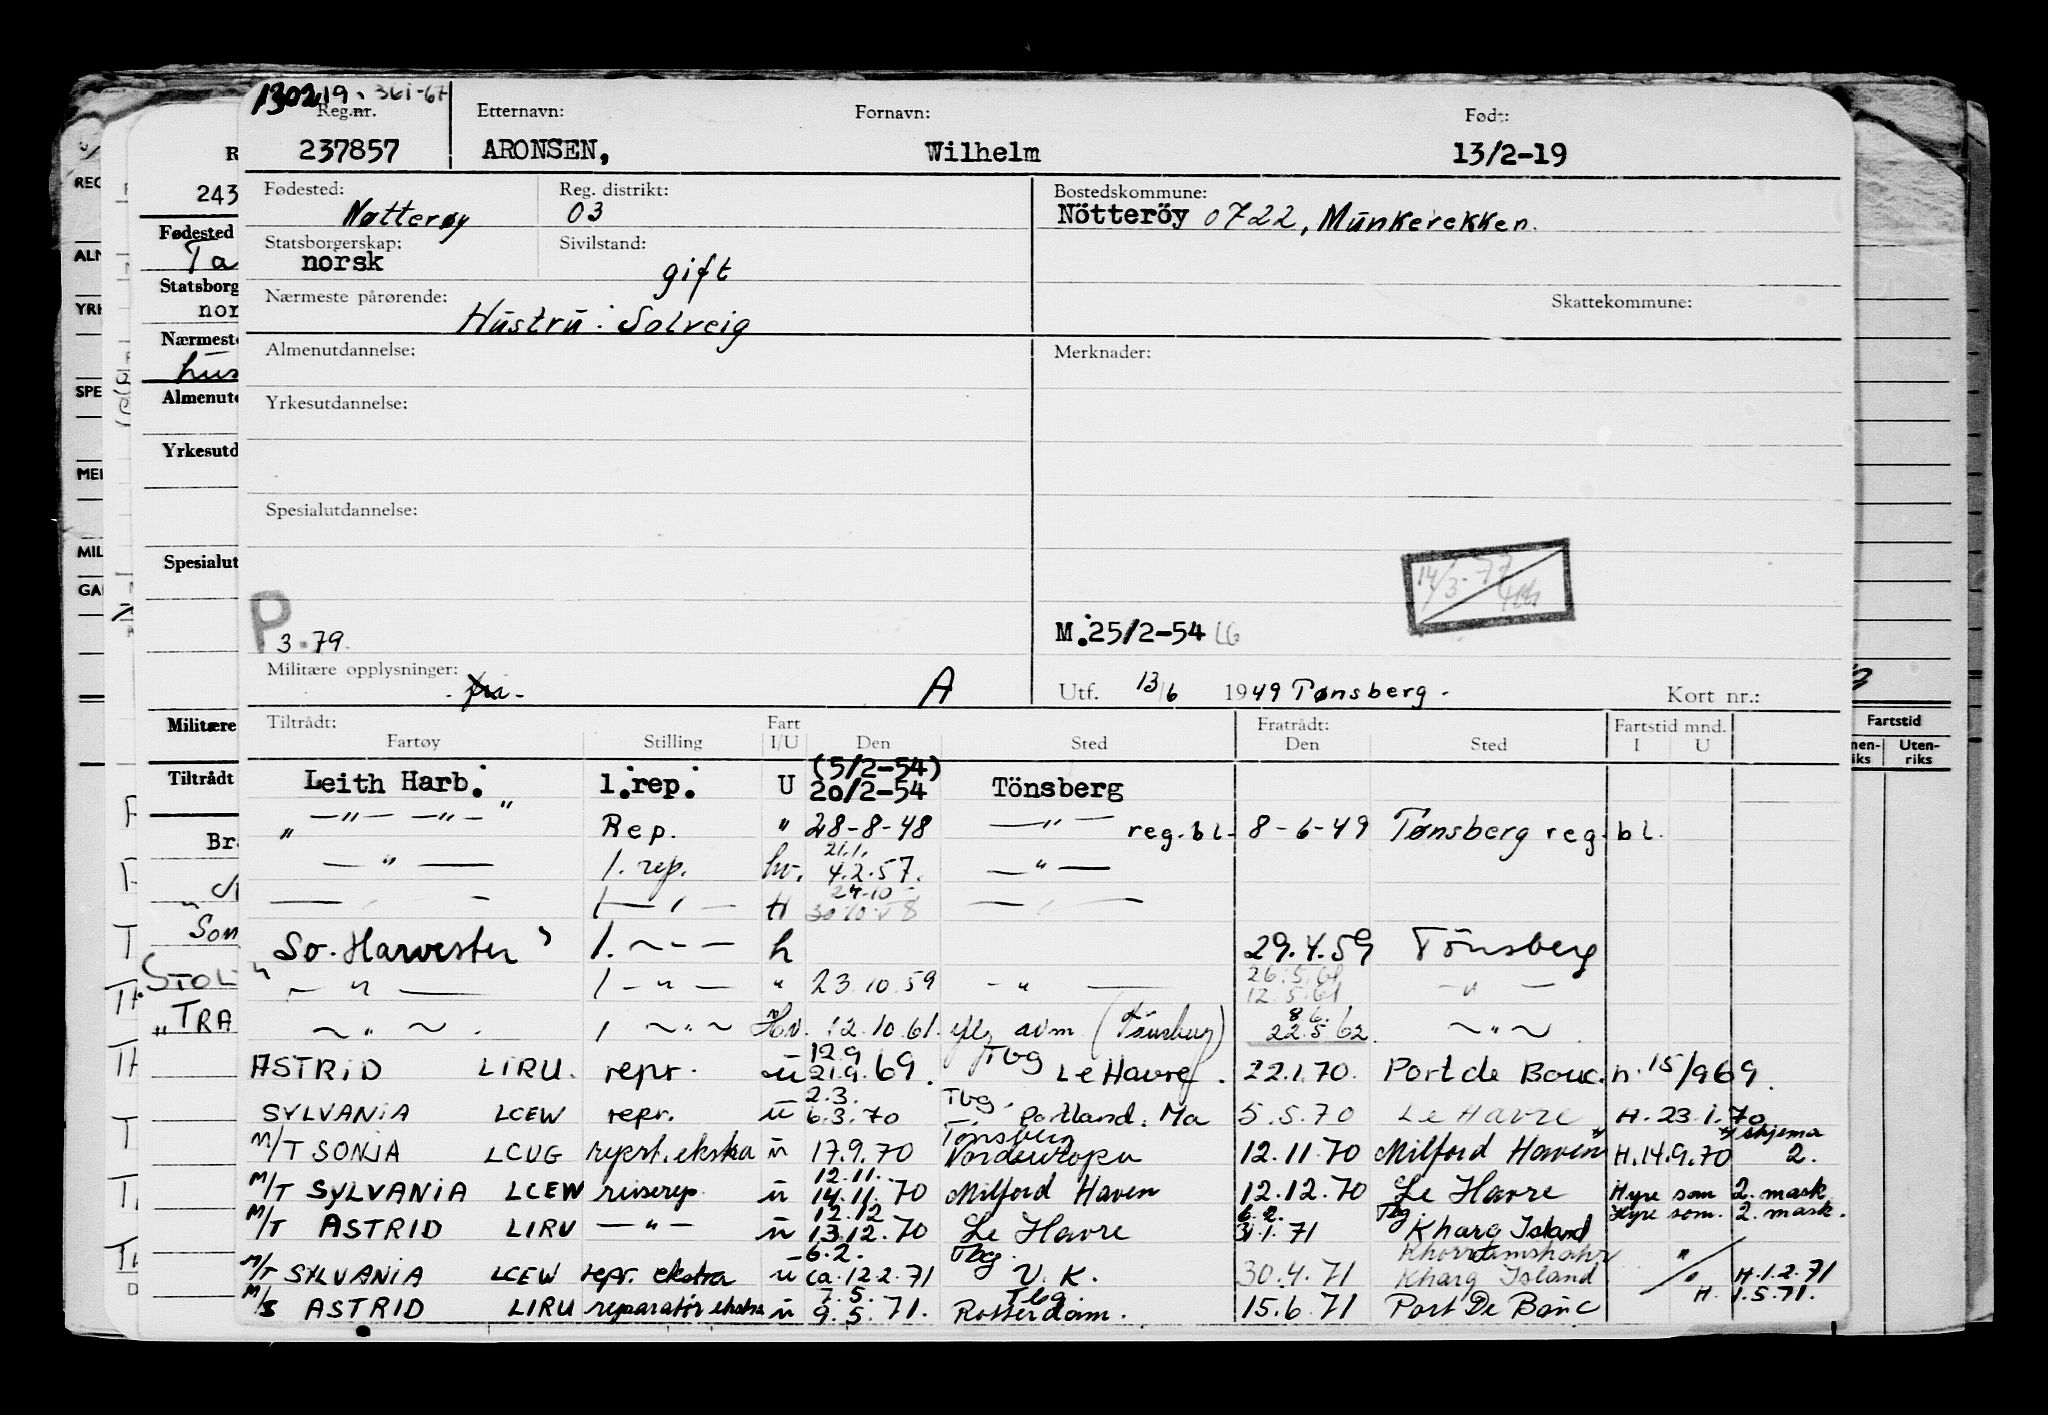 130219. 361-67
Reg.nr. Etternavn: Fornavn: Født:
237857 ARONSEN, Wilhelm 13/2-19
Fødested: Reg. distrikt: Bostedskommune:
Nøtterøy 03 Nötteröy 0722, Munkerekken.
Statsborgerskap: Sivilstand:
norsk gift
Nærmeste pårørende: Skattekommune:
Hustru: Solveig
Almenutdannelse: Merknader:
Yrkesutdannelse:
Spesialutdannelse:
14/3-77
P 3.79. M. 25/2-54 LG
Militære opplysninger: A Utf. 13/6 1949 Tønsberg. Kort nr.:
Tiltrådt: Fart Fratrådt: Fartstid mnd.
Fartøy Stilling I/U Den Sted Den Sted I U
(5/2-54)
Leith Harb. 1.rep. U 20/2-54 Tönsberg
" —"— —"— " Rep. " 28-8-48 —"— reg.bl. 8-6-49 Tønsberg reg.bl.
21.1.
— " — 1. rep. hv. 4.2.57. — " —
24.10
— " — 1 — " — H 30.10.58 — " —
So. Harvester" 1. ~ - — h 29.4.59 Tönsberg
26.5.61
" — " — 1 — " — " 23.10.59 - " — 12.5.61 — " —
8 6.
~ " ~ . 1 ~ " ~ Hv. 12.10.61. (Tönsberg) 22.5.62. ~ " ~
12.9 Tbg
ASTRID LIRU. repr. u 21.9.69. Le Havre. 22.1.70. Port de Bouc. H. 15/969.
2.3. Tbg.
SYLVANIA LCEW repr. u 6.3.70 Portland. Ma 5.5.70 Le Havre H. 23.1.70
Tönsberg skjema
M/T SONJA LCUG repst. ekstra u 17.9.70 Nordeuropa 12.11.70 Milford Haven H. 14.9.70 2.
12.11.
M/T SYLVANIA LCEW reiserep. u 14.11.70 Milford Haven 12.12.70 Le Havre Hyre som 2. mask.
12.12 6.2. Tbg. Hyre som. 2. mask.
M/T ASTRID LIRU — " — u 13.12.70 Le Havre 31.1.71 Kharg Island
6.2. Tbg. Khorramshahr "
M/T SYLVANIA LCEW repr. ekstra u ca. 12.2.71 U.K. 30.4.71 Kharg Island " H. 1.2.71
7.5. Tbg. H. 1.5.71.
M/S ASTRID LIRU reparatør ekstra u 9.5.71. Rotterdam. 15.6.71 Port De Bouc
REG
ALM
YRK
SPE
MER
MIL
GAR
R
243
Fødested
Ta
Statsborg
nor
Nærmeste
hus
Almenutd
Yrkesutd
Spesialut
Militære
Tiltrådt
Bra
"Som
STOL
"TRA
Fartstid
Innen-riks Uten-riks